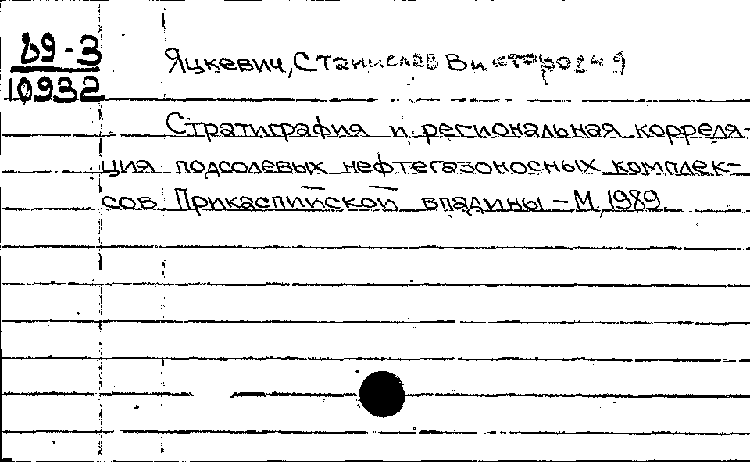 89-3
10932
Яцкевич, Станислав Викторович
Стратиграфия и региональная корреля-
ция подсолевых нефтегазоносных комплек-
сов Прикаспийской впадины - М, 1989